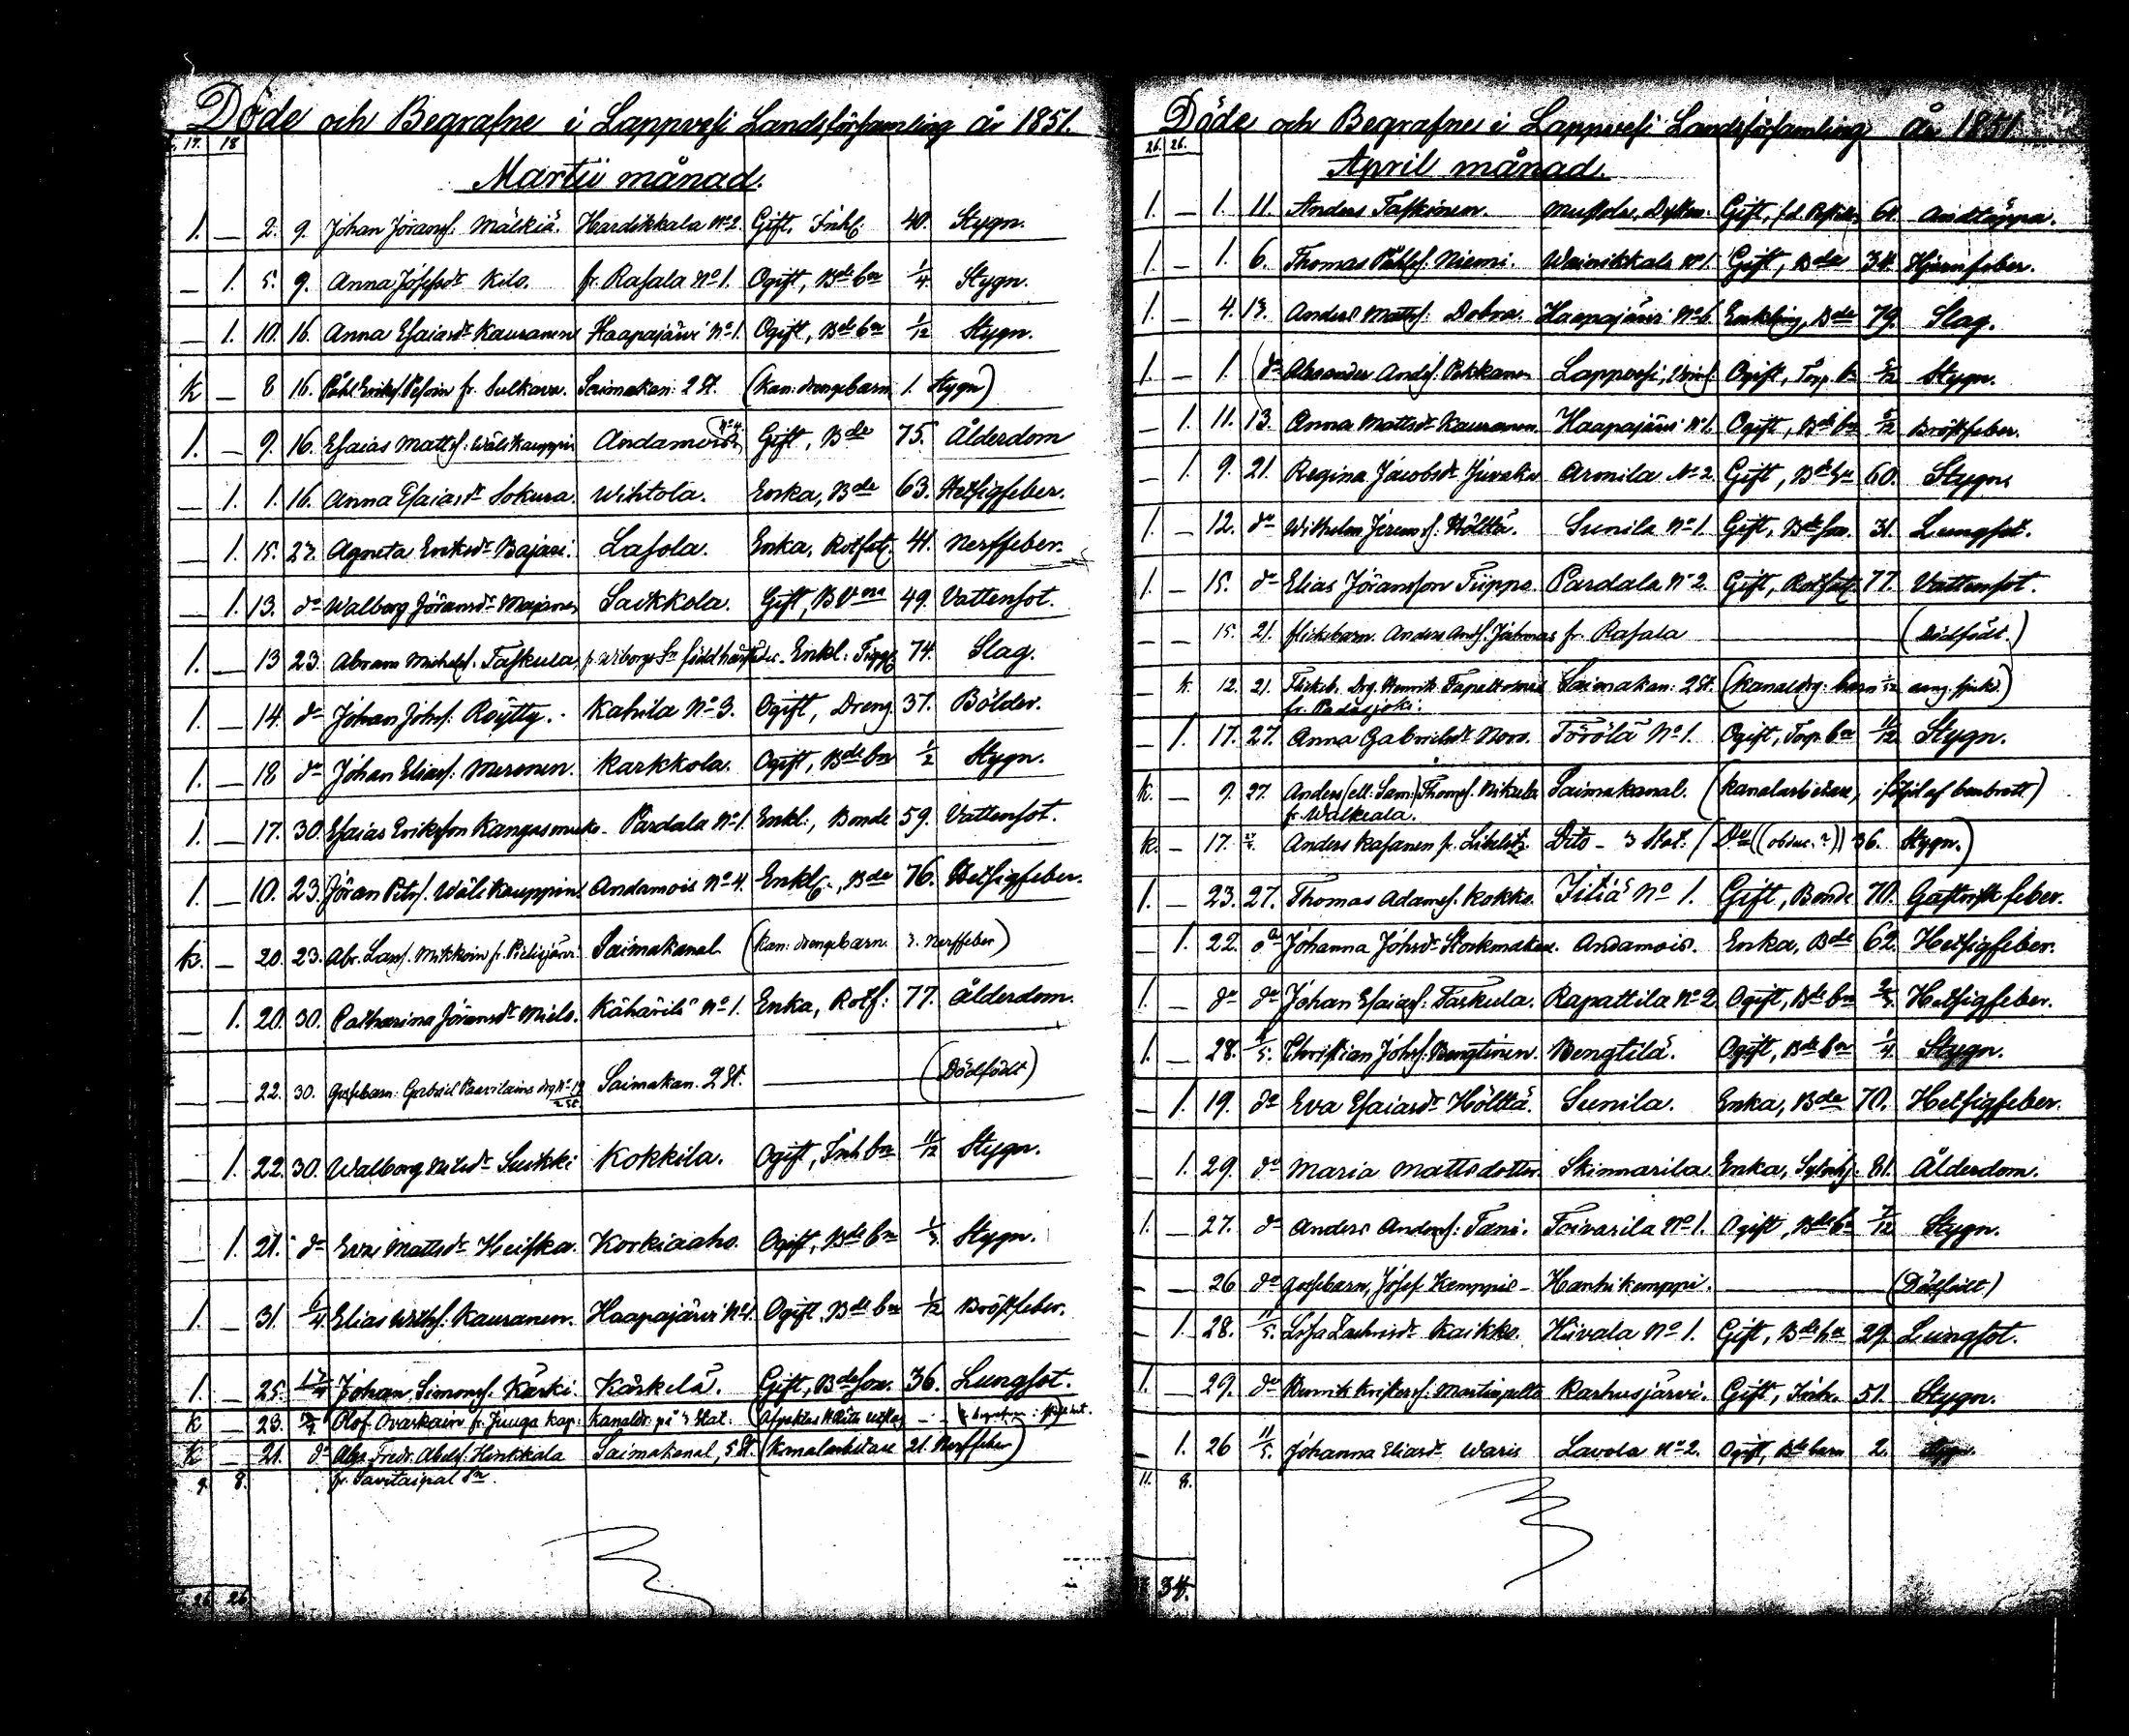 Döde och Begrafne i Lappvesi Landsförsamling år 1851.
17. 18
Martii månad.
1. — 2. 9. Johan Göransf: Mälkiä. Hardikkala No 2. Gift, Inh: 40. Stygn.
— 1. 5. 9. Anna Jósefsdr Kilo. fr. Rasala No 1. Ogift, Bde bn 1/4 Stygn.
— 1. 10. 16. Anna Esaiasdr Kauranen Haapajärvi No 1. Ogift, Bde bn 1/12 Stygn.
k — 8 16. Påhl Eriksf. fr. Sulkava. Saimakan: 2 St. (Kan: drengebarn 1. Stygn)
1. — 9. 16. Esaias Mattsf: Wälikauppin Andamois No 4. Gift, Bde 75. Ålderdom
— 1. 1. 16. Anna Esaiasdr Sokura. Wihtola. Enka, Bde 63. Hetsigfeber.
— 1. 15. 23. Agneta Eriksdr Bajari. Lasola. Enka, Rotfatt. 41. Nerffeber.
— 1. 13. do Walborg Göransdr Majanen Saikkola. Gift, B 49. Vattensot.
1. — 13 23. Abram Michelsf. Taskula, fr Wiborgs Sn född Enkl: 74. Slag.
1. — 14. do Johan Johsf: Röytty. Kahila No 3. Ogift, Dreng 37. Bölder.
1. — 18 do Johan Eliasf: Meronen. Karkkola. Ogift, Bde bn 1/2 Stygn.
1. — 17. 30. Esaias Eriksson Kangasmuko Pardala No 1. Enkl:, Bonde 59. Vattensot.
1. — 10. 23. Jöran Petsf. Wälikauppin. Andamois No 4. Enkl., Bde 76. Hetsigfeber.
k. — 20. 23. Abr. Larsf. Mikkoin fr. Pielisjärvi Saimakanal (Kan: drengebarn. 3. Nerffeber)
— 1. 20. 30. Catharina Göransdr Mielo. Kähärilä No 1. Enka, Rotf: 77. Ålderdom.
— — 22. 30. Gossebarn: Gabriel Paavilains drg No 19 2 St. Saimakan. 2 St. — (Dödfödt)
— 1. 22. 30. Walborg Nilsdr Suikki Kokkila. Ogift, Inh bn 11/12 Stygn.
— 1. 21. do Eva Mattsdr Heiska. Korkiaaho. Ogift, Bde bn 1/3 Stygn.
1. — 31. 6/4. Elias Kauranen. Haapajärvi No 1. Ogift Bde bn 1/12 Bröstfeber.
1. — 25. Johan Simonsf. Kärki. Kärkelä. Gift, Bde son. 36. Lungsot.
k — 23. Olof Ovaskain fr. Juuga Kap: Kanaldr. på 3 Stat:
k — 21. do Alex. Fredr. Abelsf: Hinkkala Saimakanal, 5 St. (Kanalarbetare 21. Nerffeber)
fr. Savitaipal Sn
9. 8.
26 26
Döde och Begrafne i Lappvesi Landsförsamling År 1851
26. 26.
April månad.
1. — 1. 11. Anders Taskinen. Gift, 61. Andtäppa.
1. — 1. 6. Thomas Påhlsf. Niemi. Wainikkala No 1. Gift, Bde 34. Hjernfeber.
1. — 4. 13. Anders Mattsf: Dobra. Haapajärvi No 6. Enkling, Bde 79. Slag.
1. — 1. do Alexander Andsf: Pekkanen Lappvesi, Ogift, Torp. bn 5/12 Stygn.
— 1. 11. 13. Anna Mattsdr Kauranen. Haapajärvi No 1. Ogift, Bde bn 5/12 Bröstfeber.
— 1. 9. 21. Regina Jacobsdr Juvaka Armila No 2. Gift, Bde hu 60. Stygn
1. — 12. do Wilhelm Jeremsf: Höltta. Sunila No 1. Gift, Bde son. 31. Lungsot.
1. — 15. do Elias Jöransson Tiippo. Pardala No 2. Gift, Rotfatt. 77. Vattensot.
— — 15. 21. flickebarn. Anders Andsf. fr. Rasala — (Dödfödt.)
— k. 12. 21. Flickeb. Drg. Henrik Tapell Saimakan: 2 St. (Kanaldrg: barn
fr. Padasjoki.
— 1. 17. 27. Anna Gabrielsdr Noro. Törölä No 1. Ogift, Torp. bn 11/12 Stygn.
k. — 9. 27. Anders (ell: Sam:) Thomsf. Mikula Saimakanal. (Kanalarbetare, i följd af benbrott)
fr. Walkeala.
k. — 17. Anders Kasanen fr. Libelitz. Dito – 3 Stat. (Do ((obduc.?)) 36. Stygn.)
1. — 23. 27. Thomas Adamsf. Kokko. Iitiä No 1. Gift, Bonde 70. Gastrisk feber.
— 1. 22. do Johanna Johsdr Storkmakare. Andamois. Enka, Bde 62. Hetsigfeber.
1. — do do Johan Esaiasf: Taskula. Rapattila No 2. Ogift, Bde bn 2/3. Hetsigfeber.
1. — 28. 4/5. Christian Johsf: Bengtinen. Bengtilä. Ogift, Bde bn 1/4. Stygn.
— 1. 19. do Eva Esaiasdr Höltta. Sunila. Enka, Bde 70. Hetsigfeber.
— 1. 29. do Maria Mattsdotter Skinnarila. Enka, 81. Ålderdom.
1. — 27. do Anders Andersf: Tani. Toivarila No 1. Ogift, Bde bn 7/12 Stygn.
— — 26 do Gossebarn, Josef Kemppis – Hanhikemppi. — (Dödfödt)
— 1. 28. 11/5. Lisa Zachrisdr Kaikko. Hivala No 1. Gift, Bde hu 29. Lungsot.
1. — 29. do Henrik Kristersf: Martinpelto Karhusjärvi. Gift, Inh. 51. Stygn.
— 1. 26 11/5. Johanna Eliasdr Waris Lavola No 2. Ogift, Bde barn 2. Stygn.
11. 8.
34.